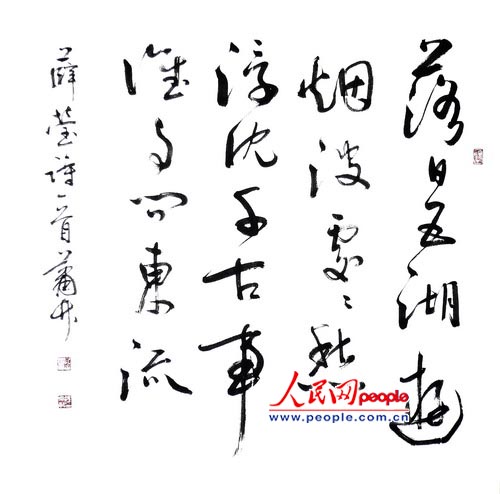 落日五湖遊
烟波處〻愁
浮沈千古事
誰与问東流
薛莹诗一首
人民网 people
www.people.com.cn